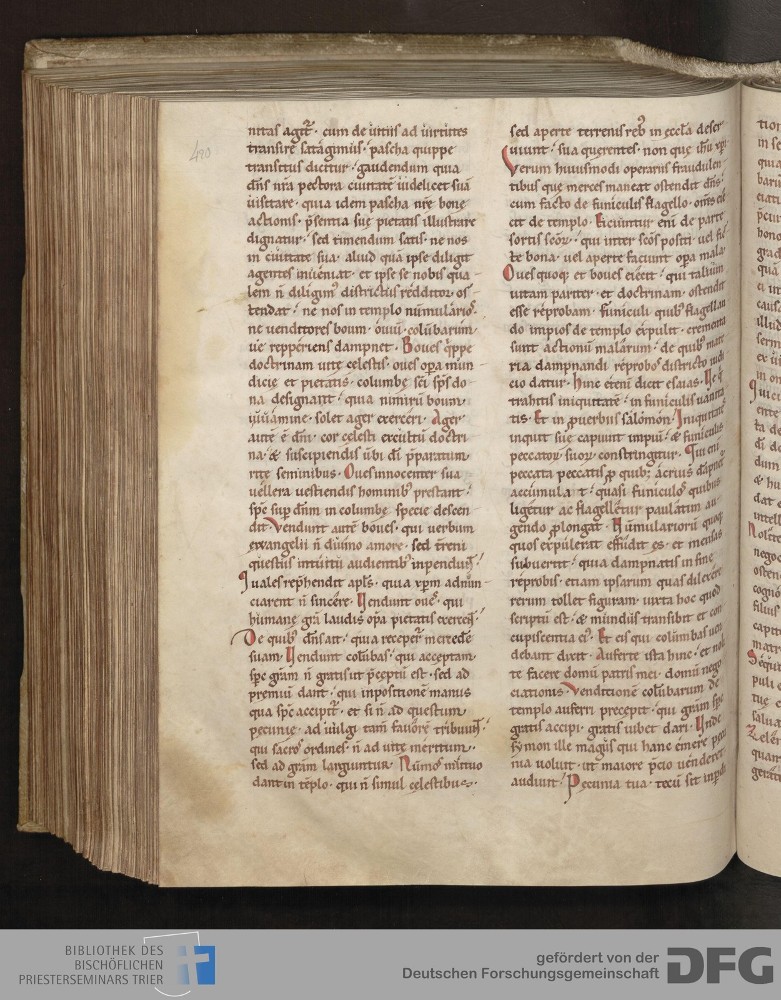 490
nitas agit᷒· cum de uitiis ad uirtutes
transire satagimus· pascha quippe
transitus dicitur· gaudendum quia
dn̄s nr̄a pectora ciuitatē uidelicet suā
uisitare· quia idem pascha nr̄ę bonę
actionis· p̄sentia suę pietatis illustrare
dignatur· sed timendum satis· ne nos
in ciuitate sua· aliud quā ipse diligit
agentes inueniat· et ipse se nobis qua-
lem n̄ diligim᷒ districtus redditor os-
tendat· ne nos in templo nūmularios·
ne uenditores boum· ouiū· colūbarum
ue repperiens dampnet· Boues q̇ppe
doctrinam uitę cęlestis· oues oꝑa mun-
dicię et pietatis· columbę sc̄i sp̄s do-
na designant· quia nimirū boum·
iuuamine· solet ager exerceri· Ager
autē ē dn̄i· cor cęlesti excultū doctri-
na· & suscipiendis ūbi dī p̄paratum
rite seminibus· Oues innocenter sua
uellera uestiendis hominib᷒ prestant·
sp̄c suꝑ dn̄m in columbę specie descen-
dit· Vendunt autē boues· qui uerbum
ewangelii n̄ diuino amore· sed t̄reni
questus intuitu audientib᷒ inpendunt·
Quales rep̄hendit apl̄s· quia xp̄m adnun-
ciarent n̄ sincere· Vendunt oues· qui
humanę grā laudis oꝑa pietatis exercent·
De quib᷒ dn̄s ait· quia recepert̄ mercedē
suam· Vendunt colūbas· qui acceptam
sp̄c grām n̄ gratis ut p̄ceptū est· sed ad
premiū dant· qui inpositionē manus
qua sp̄c accipit᷒· et si n̄ ad questum
pecunię· ad uulgi tam̄ fauorē tribuunt·
qui sacros ordines· n̄ ad uitę meritum·
sed ad grām largiuntur· Nūmos mutuo
dant in tēplo· qui n̄ simul cęlestibus·
sed aperte terrenis reb᷒ in ęccl̄a deser-
uiunt· sua querentes· non quę ih̄u xp̄i
Verum huiusmodi operarii fraudulen-
tibus quę merces maneat ostendit dn̄s·
cum facto de funiculis flagello· om̄s eie-
cit de templo· Eiciuntur eni de parte
sortis sc̄oꝝ· qui inter sc̄os positi· uel fic-
te bona· uel aperte faciunt oꝑa mala·
Oues quoq; et boues eiecit· qui talium
uitam pariter· et doctrinam· ostendit
esse reprobam· Funiculi quib᷒ flagellan-
do impios de templo expulit· crementa
sunt actionū malarum· de quib᷒ mate-
ria dampnandi reprobos districto iudi-
cio datur· Hinc etenī dicit esaias· Vę q̇
trahitis iniquitatē in funiculis uanita-
tis· Et in ꝓuerbiis salomon· Iniquitates
inquit suę capiunt impiū· & funiculis
peccatoꝝ suoꝝ constringitur· Qui eni
peccata peccatis ꝓ quib; acrius dāpnet᷒
accumulat· quasi funiculos quibus
ligetur ac flagelletur paulatim au-
gendo ꝓlongat· Nūmulariorū quoq;
quos expulerat effudit ęs· et mensas
subuertit· quia dampnatis in fine
reprobis· etiam ipsarum quas dilexere
rerum tollet figuram· iuxta hoc quod
scriptū est· & mundus transibit et con-
cupiscentia ei᷒· Et eis qui columbas uen-
debant dixit· Auferte ista hinc· et noli-
te facere domū patris mei· domū nego-
ciationis· Venditionē colūbarum de
templo auferri precepit· qui grām sp̄c
gratis accipi· gratis iubet dari· Vnde
symon ille magus qui hanc emere pecu-
nia uoluit· ut maiore p̄cio uenderet
audiuit· Pecunia tua· tecū sit in perdi
BIBLIOTHEK DES
BISCHÖFLICHEN
PRIESTERSEMINARS TRIER
gefördert von der
Deutschen Forschungsgemeinschaft
DFG